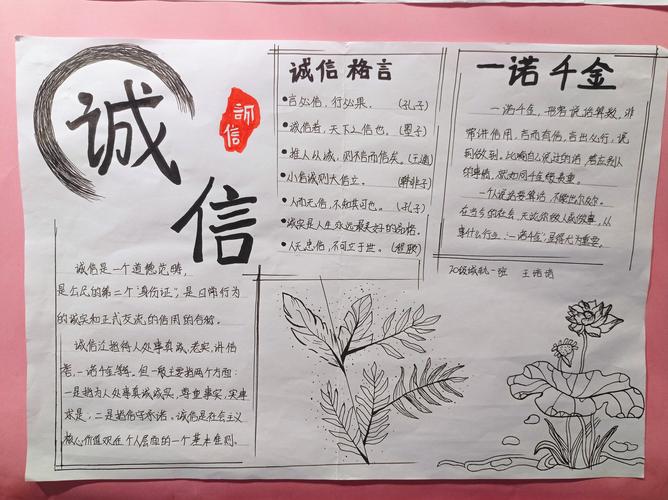 诚信
诚信
诚信是一个道德范畴,
是公民的第二个"身份证",是日常行为
的诚实和正式交流的信用的合称。
诚信泛指待人处事真诚、老实、讲信
誉,一诺千金等。但一般主要指两个方面:
一是指为人处事真诚诚实,尊重事实,实事
求是;二是指信守承诺。诚信是社会主义
核心价值观在个人层面的一个基本准则。
诚信格言
言必信,行必果。(孔子)
诚信者,天下之结也。(墨子)
推人以诚,则不言而信矣。(王通)
小信诚则大信立。(韩非子)
人而无信,不知其可也。(孔子)
诚实是人生永远最美好的品格。
人无忠信,不可立于世。(程颐)
一诺千金
一诺千金,形容说话算数,非
常讲信用,言而有信,言出必行,说
到做到。比喻自己说过的话,答应别人
的事情,就如同千金般贵重。
一个人说话要算话,不能出尔反尔。
在当今的社会,无论你做人或做事,从
事什么行业,"一诺千金"显得尤为重要。
20级城轨一班 王诺诺